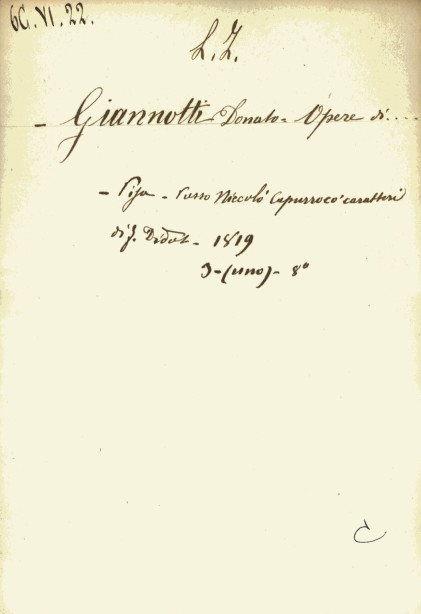 6C.VI.22.
L.Z.
- Giannotti Donato = Opere di....
- Pisa - Presso Niccolò Capurro co' caratteri
di F. Didot - 1819
(uno) - 8°
C